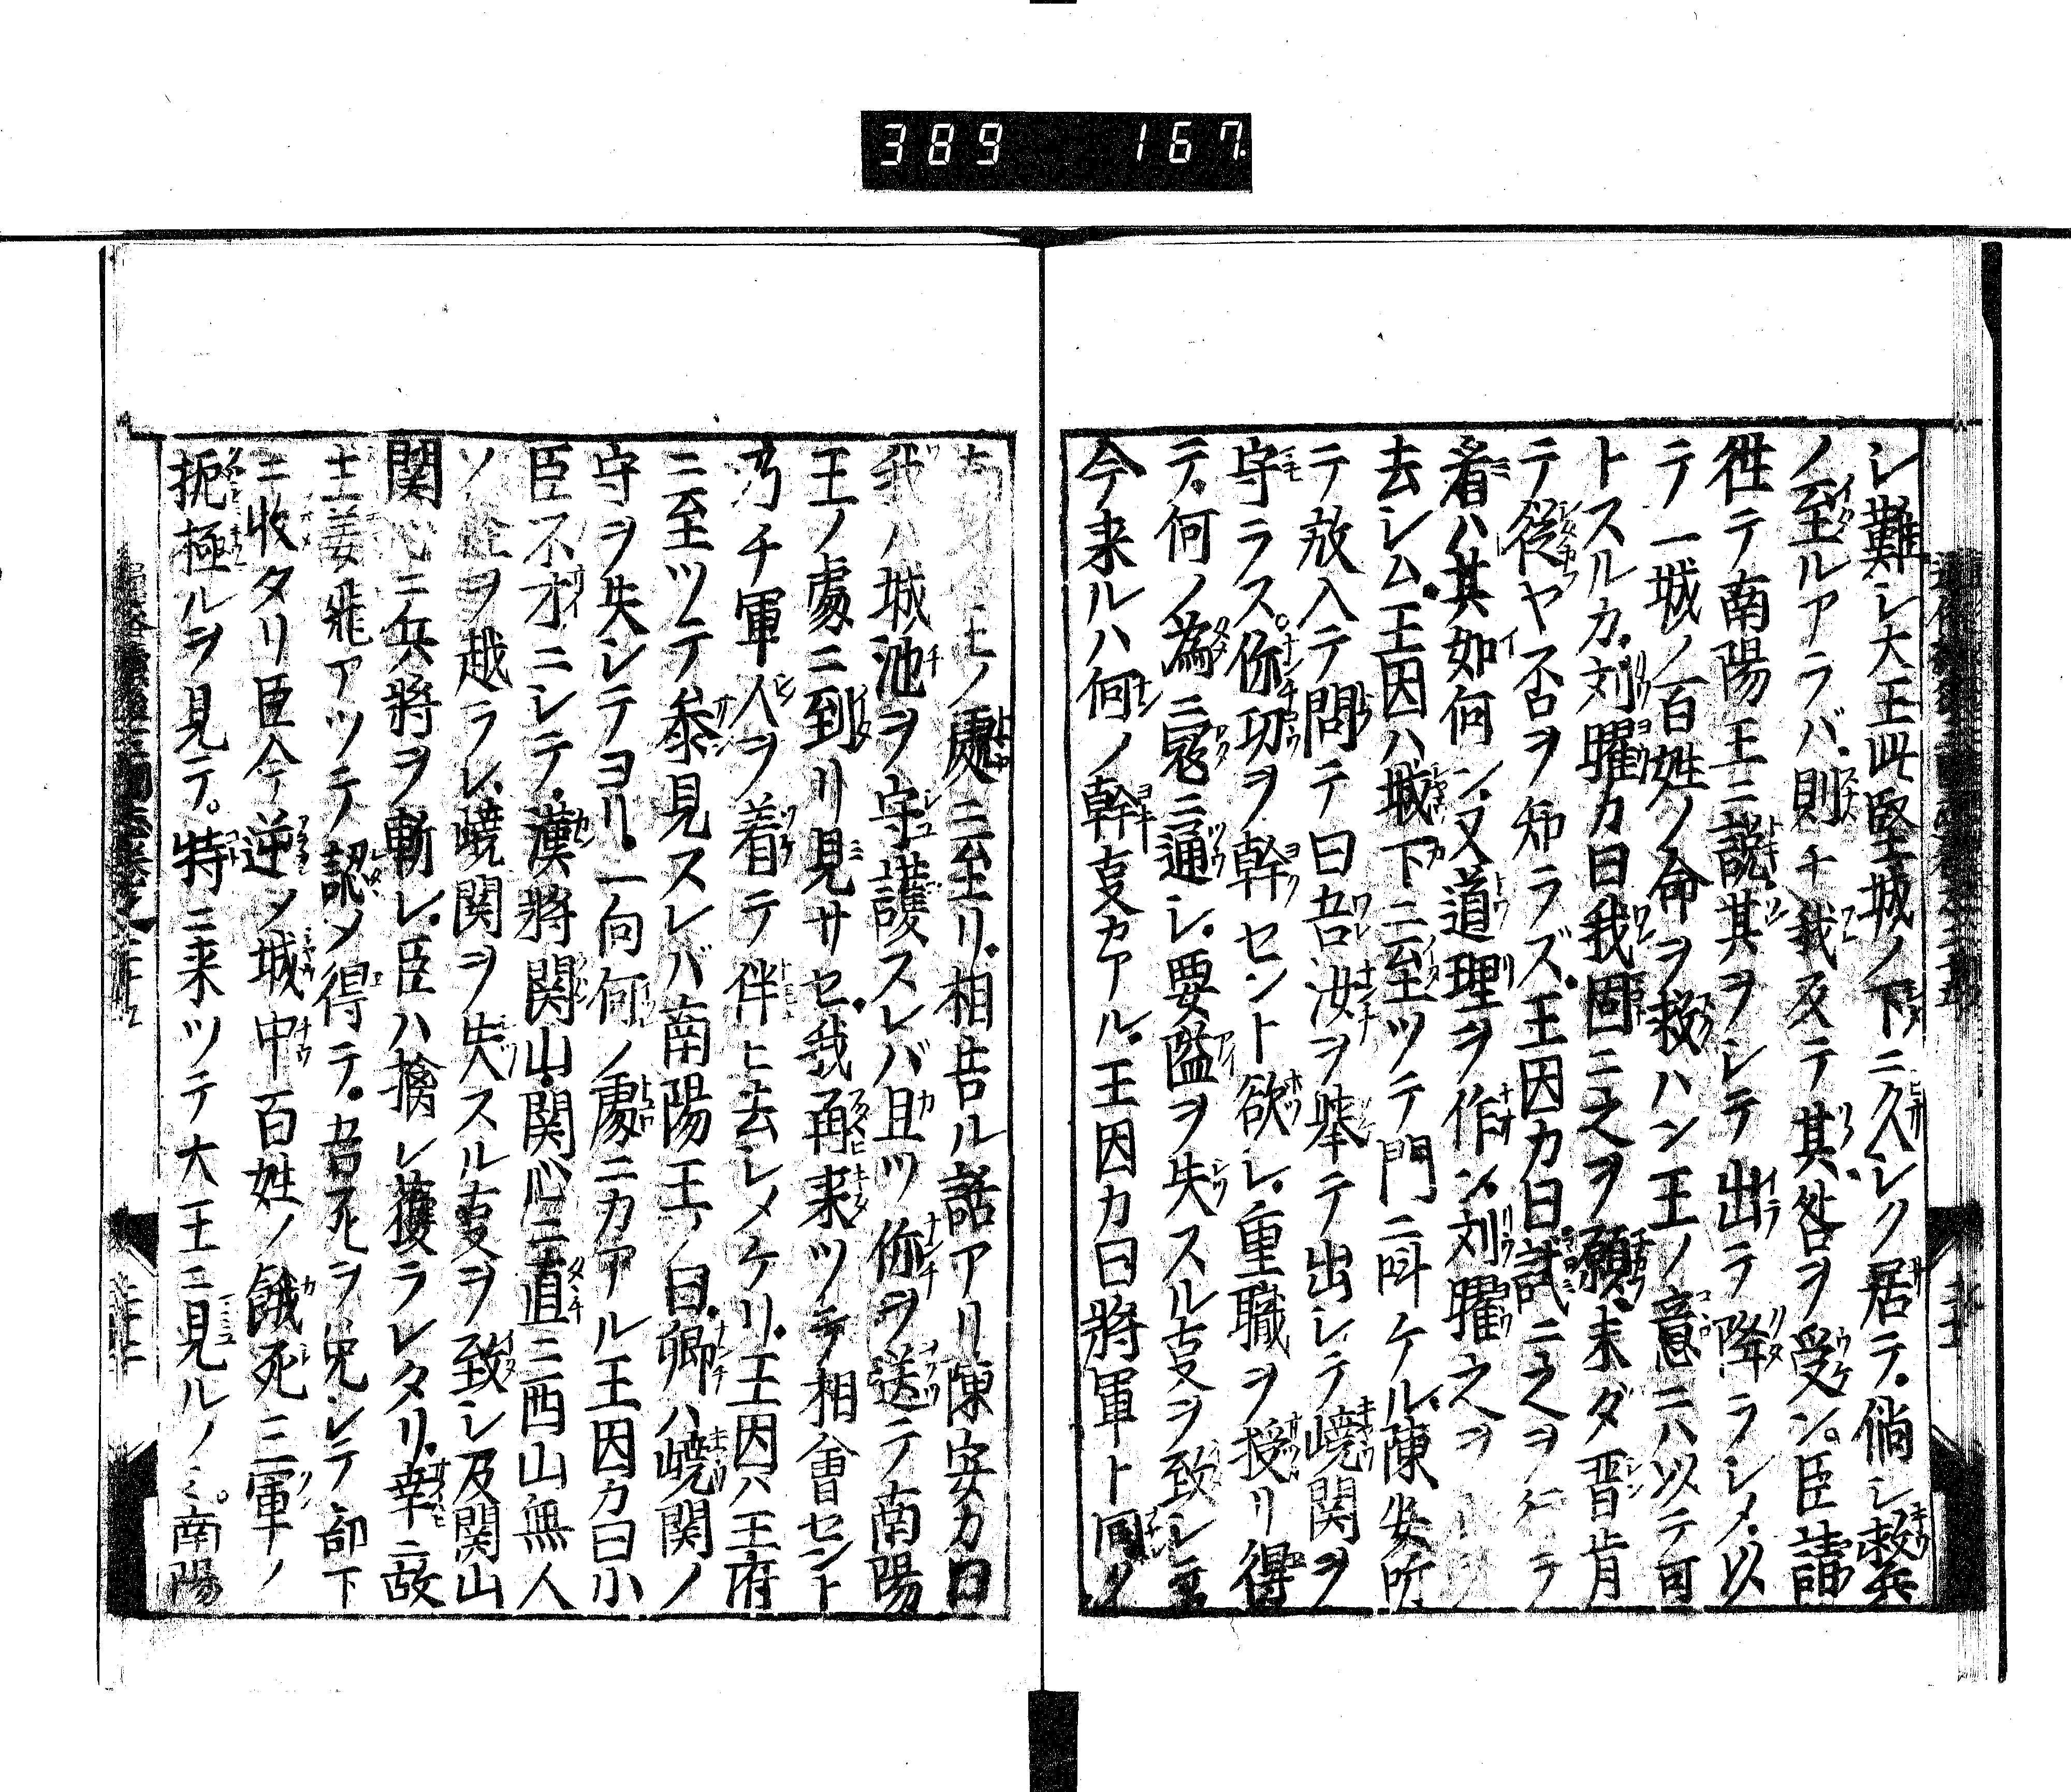 389 167
シ難シ大王此堅城ノ下ニ久シク居テ倘シ救兵
ノ至ルアラバ則チ我反テ其咎ヲ受ン臣請
徃テ南陽王ニ説其ヲシテ出テ降ラシメ以
テ一城ノ百姓ノ命ヲ救ハン王ノ意ニハ以テ可
トスルカ刘曜カ曰我固ニ之ヲ願未ダ晋肯
テ從ヤ否ヲ知ラズ王因カ曰試ニ之ヲ テ
看ハ其如何ン又道理ヲ作ン刘曜之ヲ
去シム王因ハ城下ニ至ツテ門ニ呌ケル陳安所
テ放入テ問テ曰吾汝ヲ挙テ出シテ嶢関ヲ
守ラス你功ヲ幹セント欲シ重職ヲ授リ得
テ何ノ為ニ寇ニ通シ要隘ヲ失スル㕝ヲ致シ
今来ルハ何ノ幹㕝カアル王因カ曰將軍ト同ク
ノ處ニ至リ相告ル話アリ陳安カ曰
我ハ城池ヲ守護スレバ且ツ你ヲ送テ南陽
王ノ處ニ到リ見サセ我再来ツテ相會セント
乃チ軍人ヲ着テ伴ヒ去シメケリ王因ハ王府
ニ至ツテ参見スレバ南陽王ノ曰卿ハ嶢関ノ
守ヲ失シテヨリ一向何ノ處ニカアル王因カ曰小
臣不才ニシテ漢將関山関心ニ直ニ西山無人
ノ ヲ越ラレ嶢関ヲ失スル㕝ヲ致シ及関山
関心ニ兵將ヲ斬レ臣ハ擒レ獲ラレタリ幸ニ故
主姜飛アツテ認メ得テ吾死ヲ免レテ部下
ニ收タリ臣今逆メ城中百姓ノ餓死三軍ノ
扼極ルヲ見テ特ニ来ツテ大王ニ見ルノミ南陽